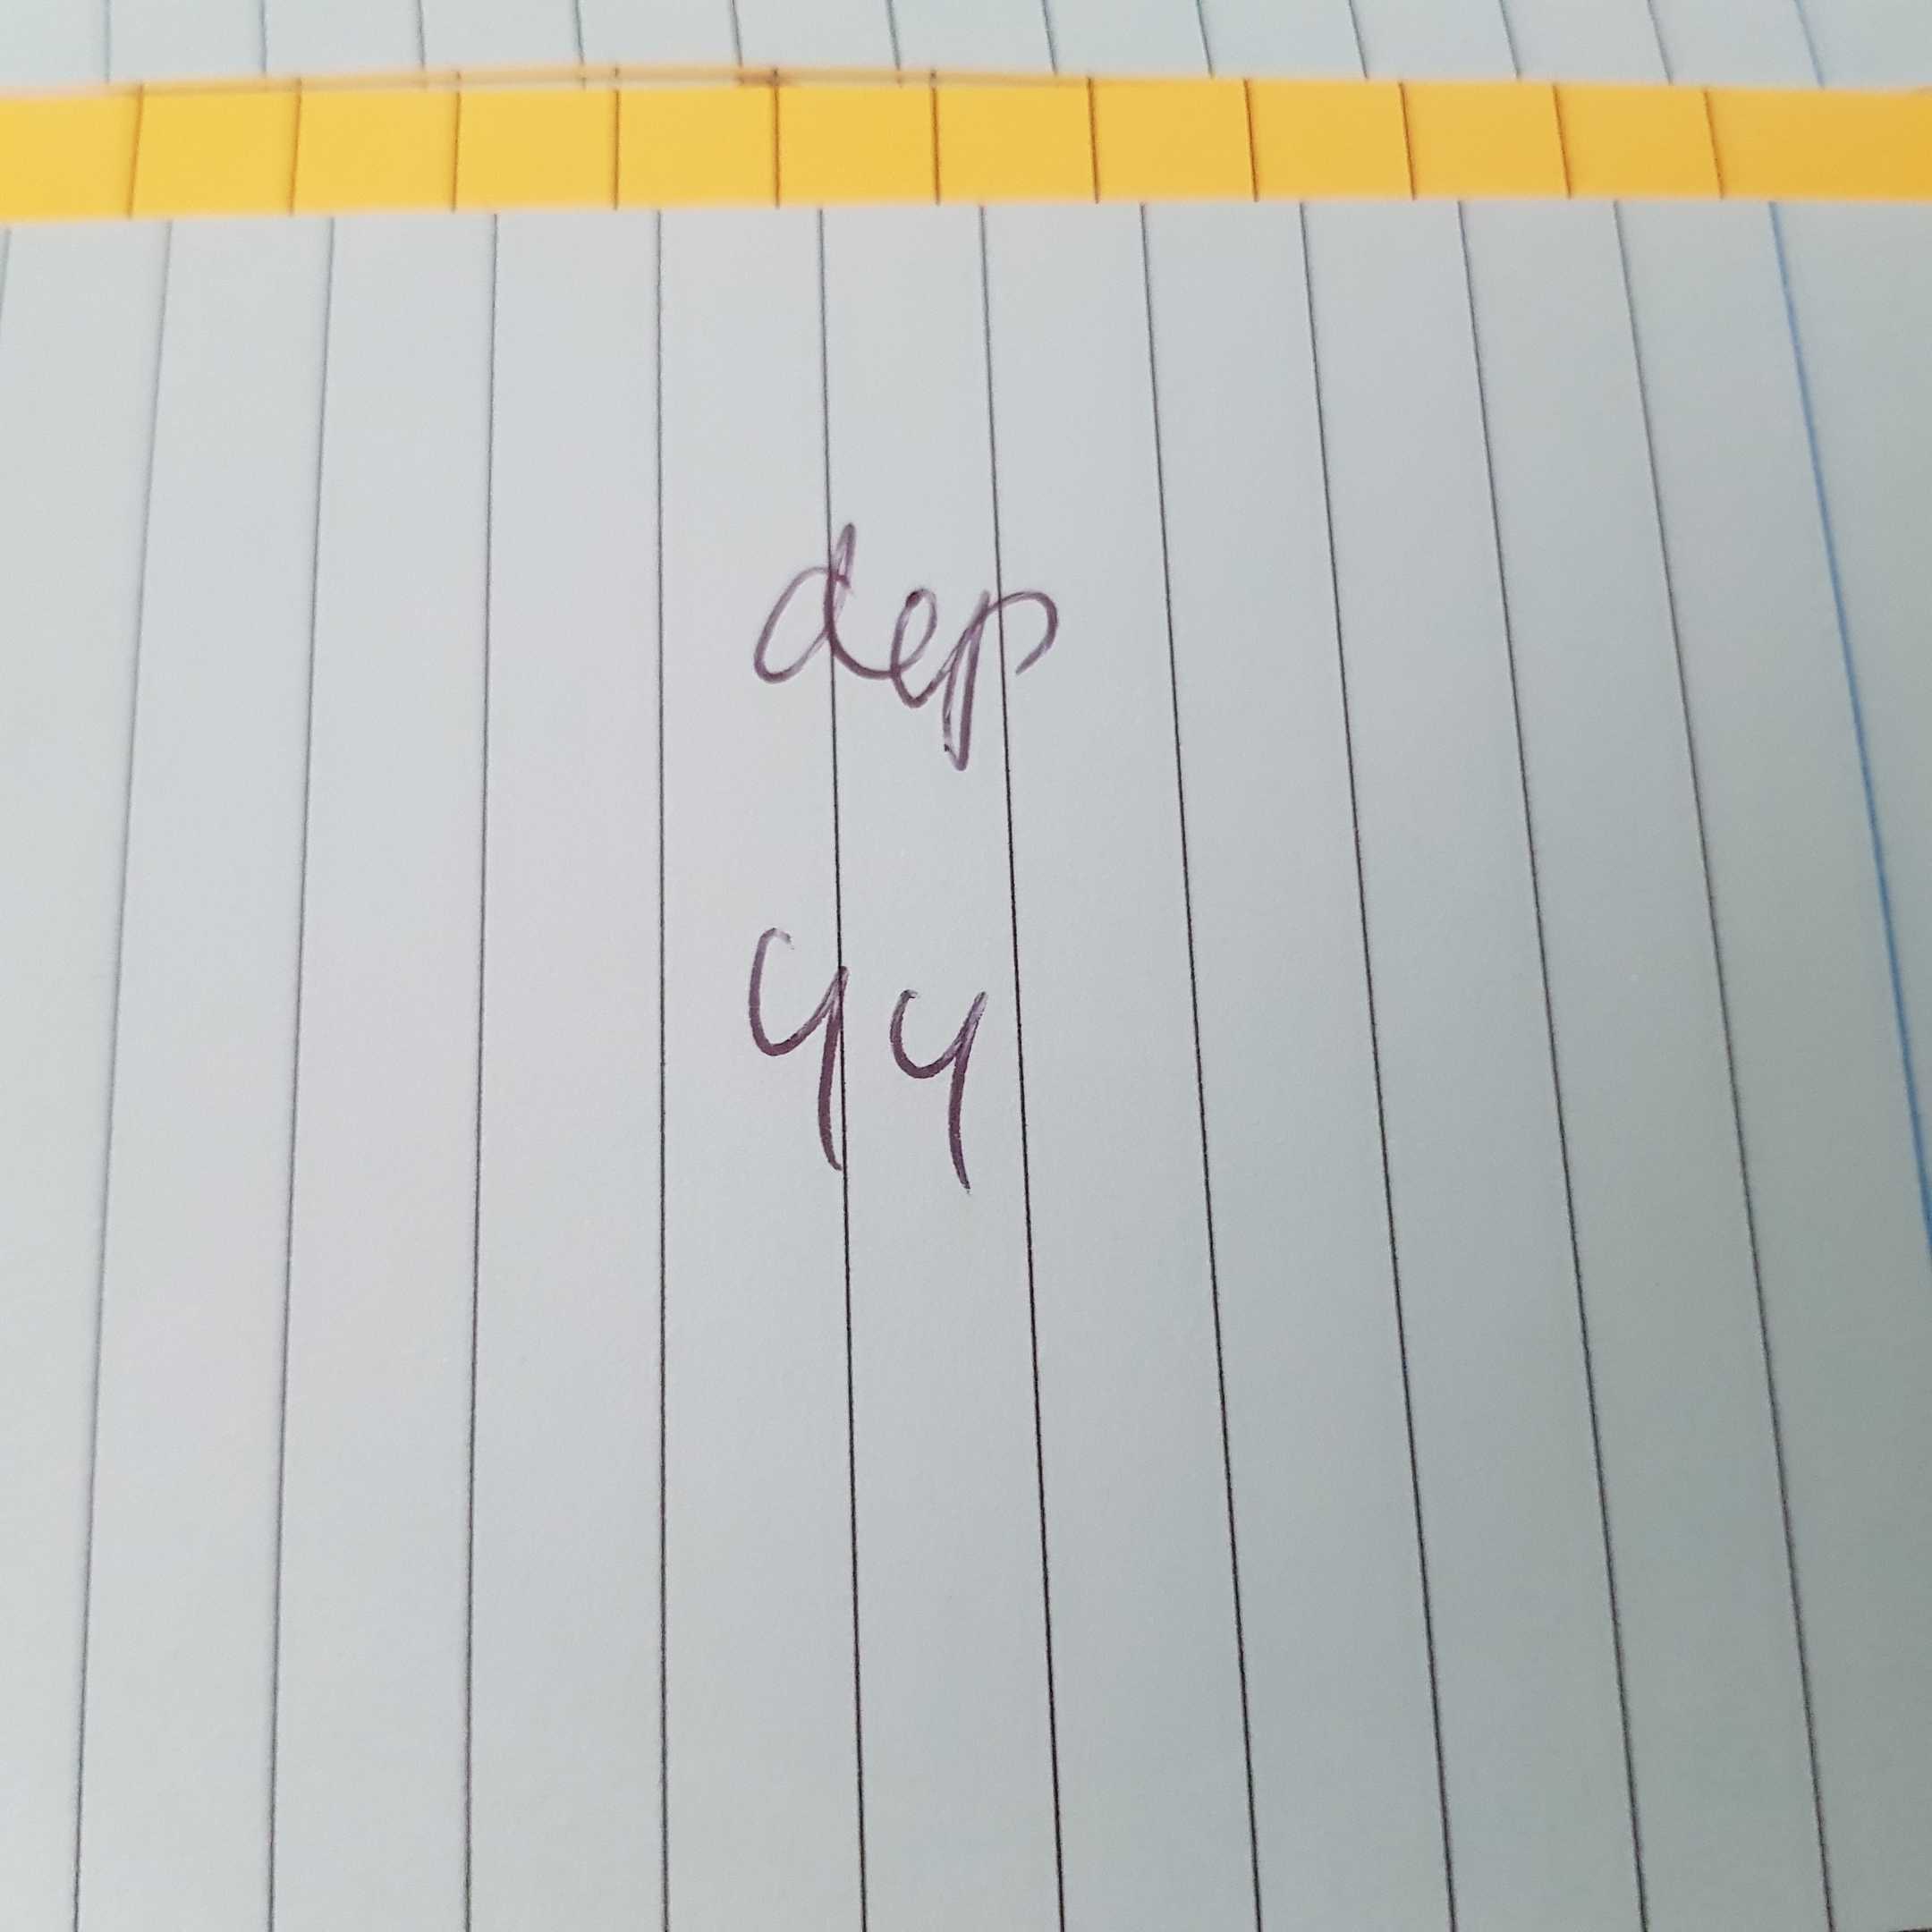 dep
44